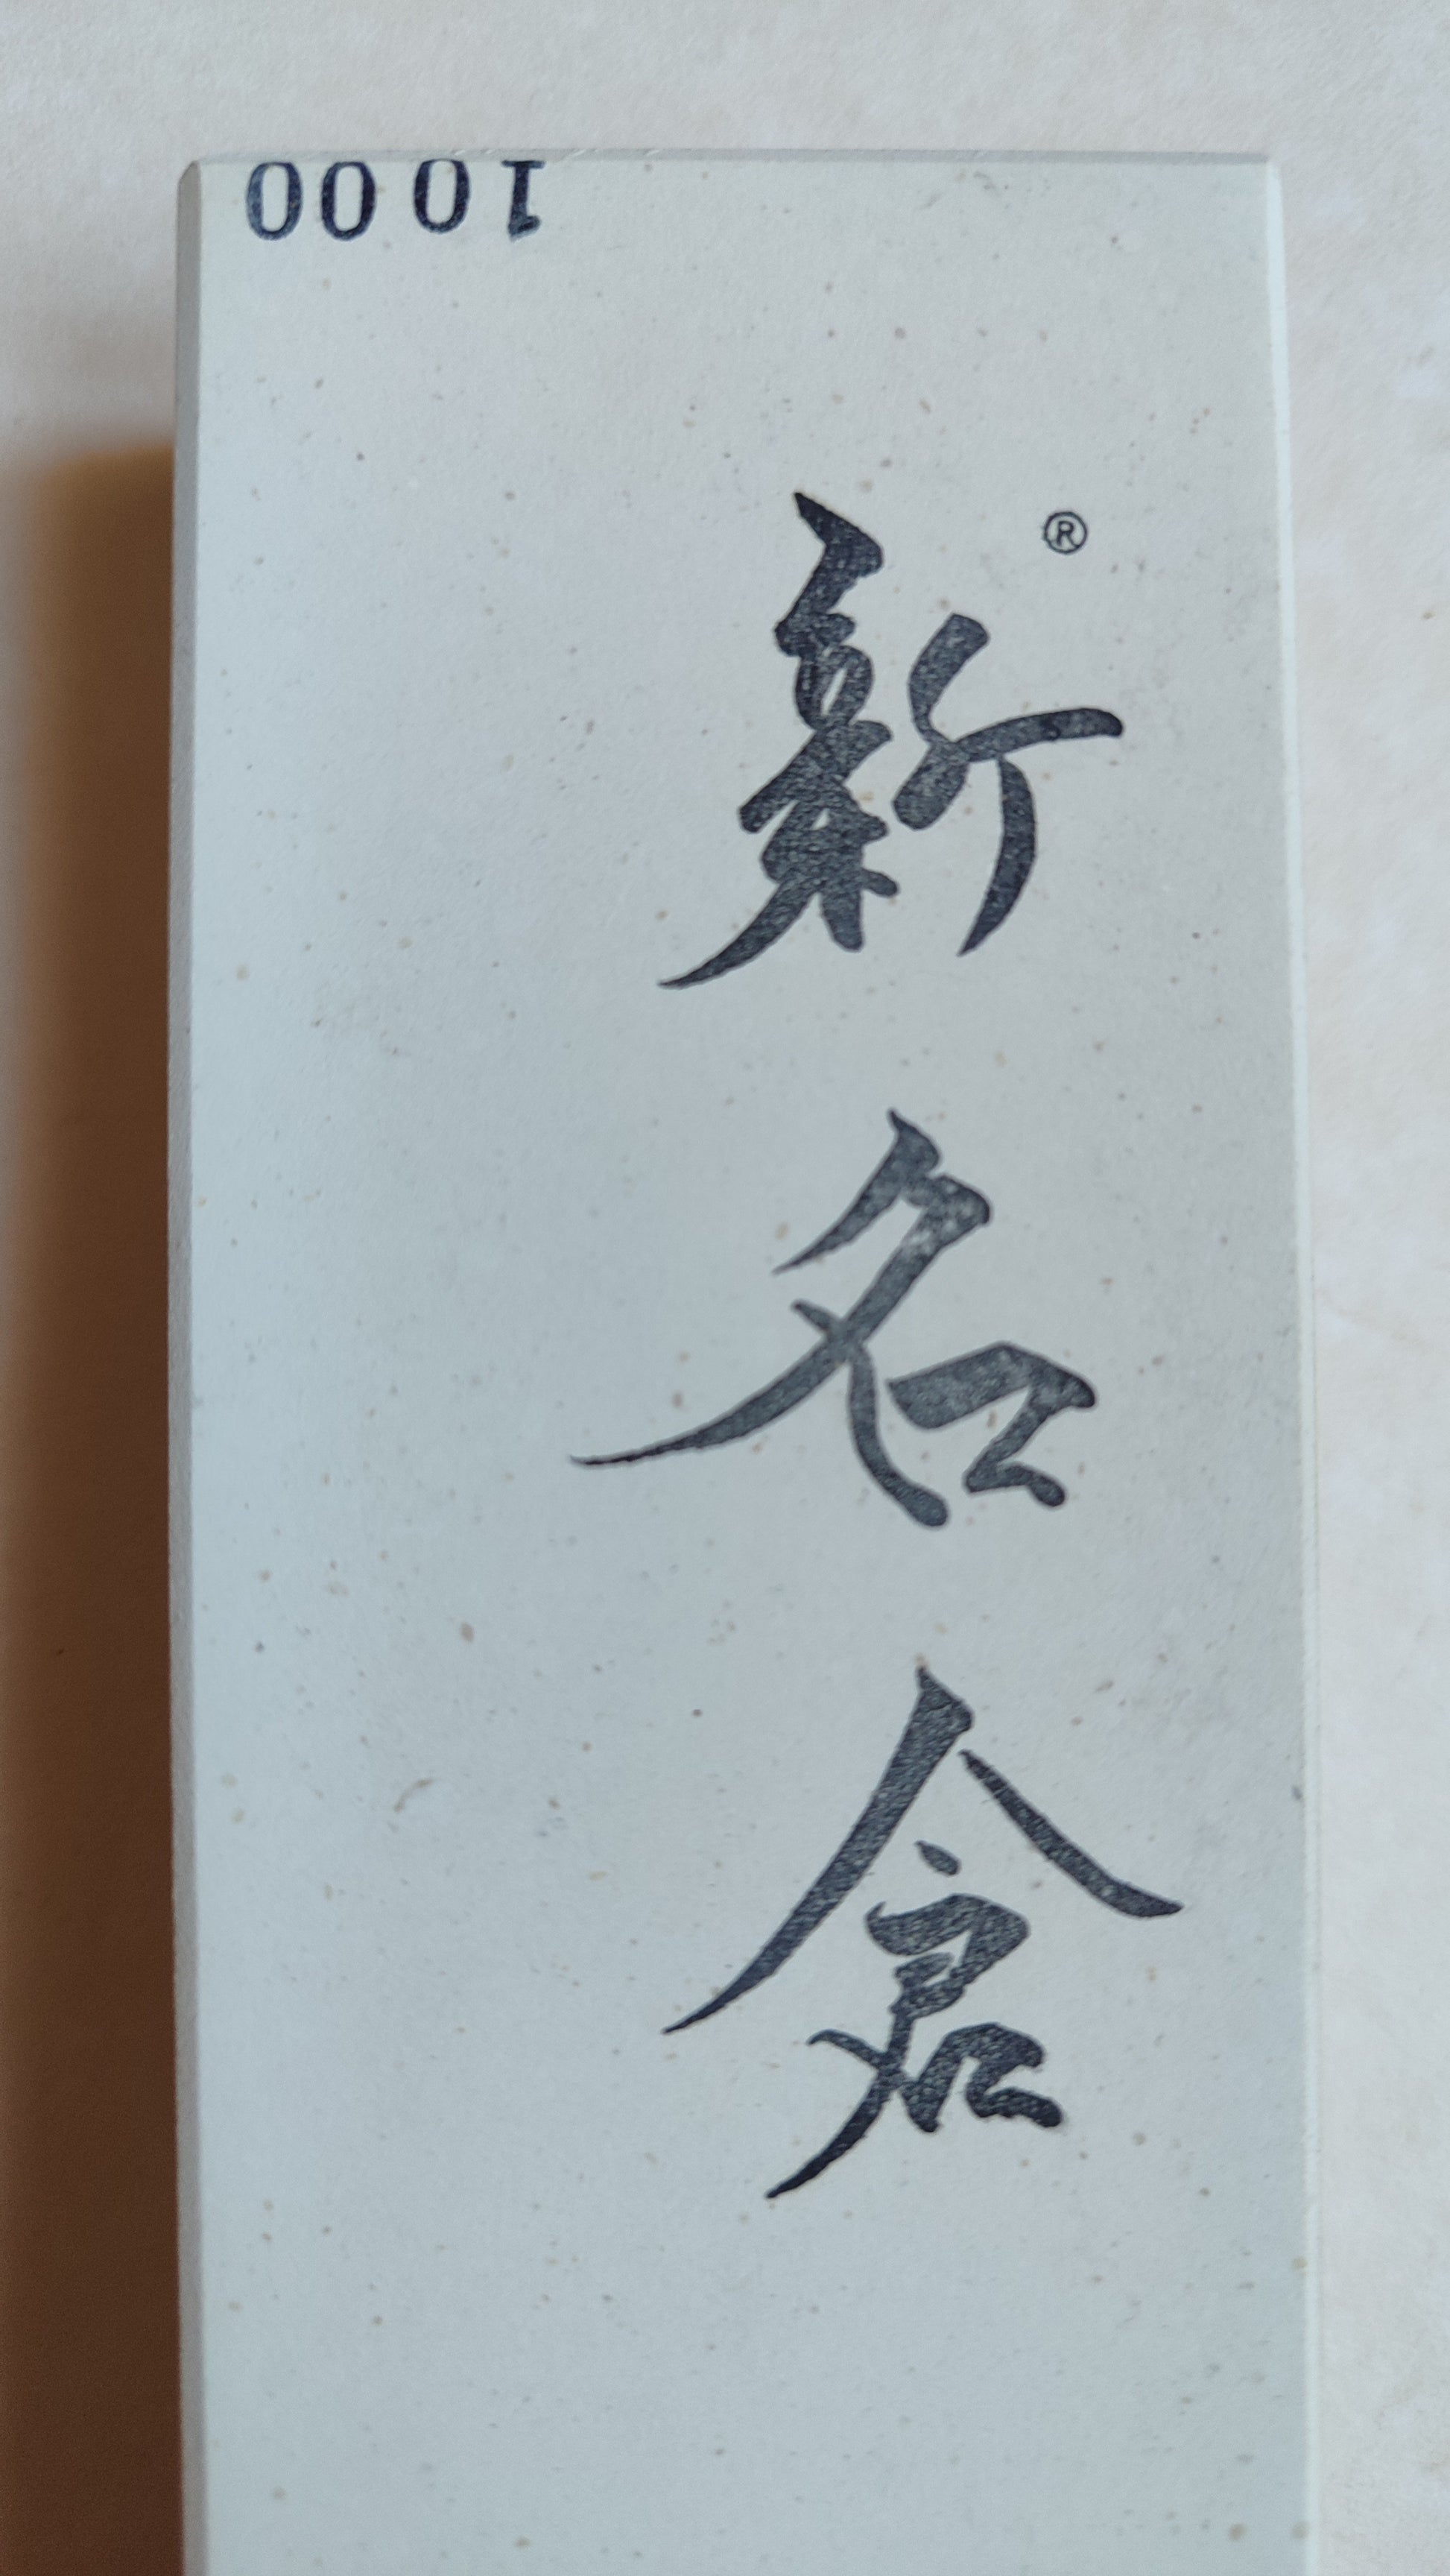 1000
®
新名倉